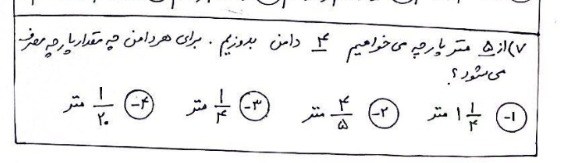 ۷) از ۵ متر پارچه می خواهیم ۴ دامن بدوزیم . برای هر دامن چه مقدار پارچه مصرف
می شود ؟
۱- ۱ ۱/۴ متر ۲- ۴/۵ متر ۳- ۱/۴ متر ۴- ۱/۲۰ متر